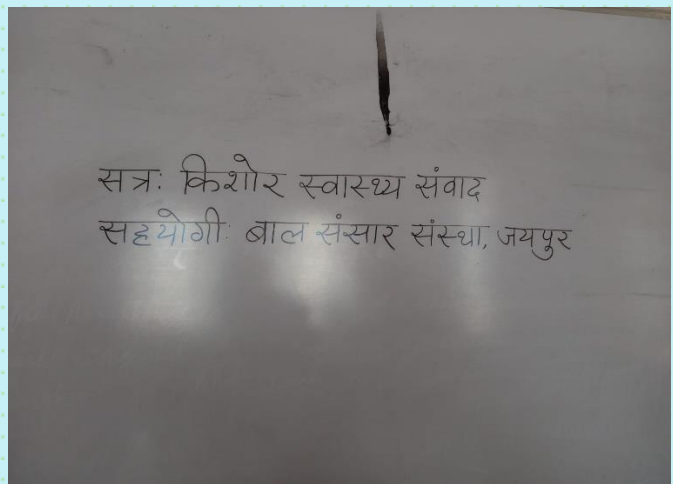 सत्र: किशोर स्वास्थ्य संवाद
सहयोगी: बाल संसार संस्था, जयपुर